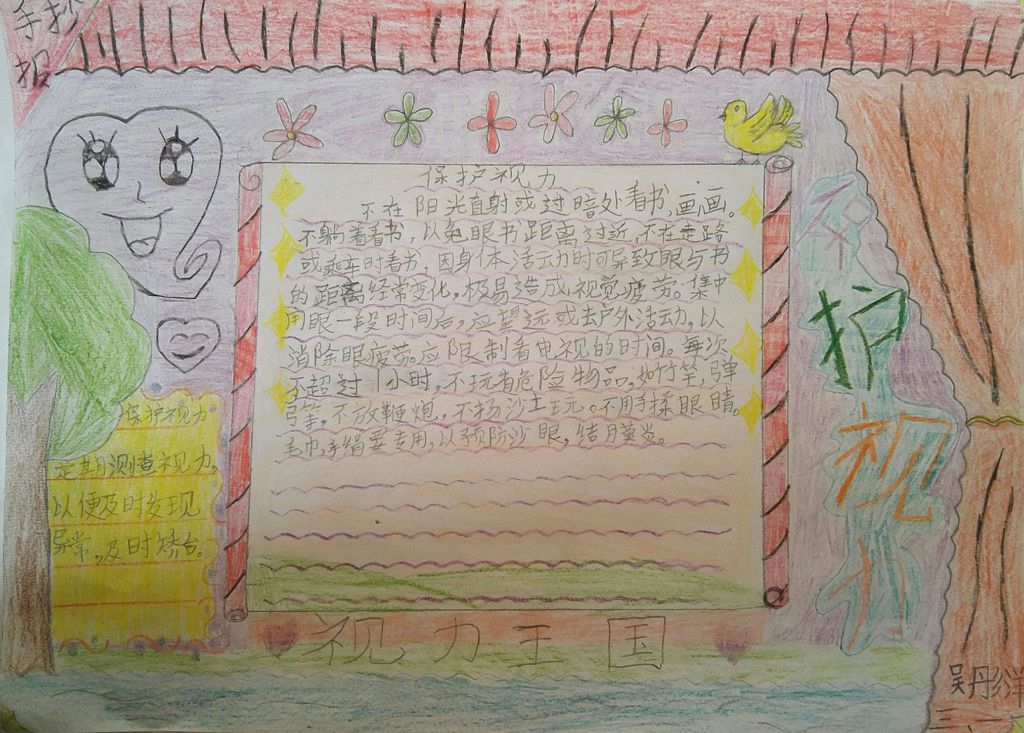 手抄
报
保护视力
不在阳光直射或过暗处看书,画画。
不躺着看书,以免眼书距离过近,不在走路
或乘车时看书,因身体活动时可导致眼与书
的距离经常变化,极易造成视觉疲劳。集中
用眼一段时间后,应望远或去户外活动,以
消除眼疲劳。应限制看电视的时间。每次
不超过1小时,不玩危险物品,如竹竿,弹
弓等,不放鞭炮,不扬沙土玩。不用手揉眼睛。
毛巾,手绢要专用,以预防沙眼,结月莫炎。
保护视力
定期测查视力,
以便及时发现
异常,及时矫治。
保
护
视
力
视力王国
吴丹
三、一